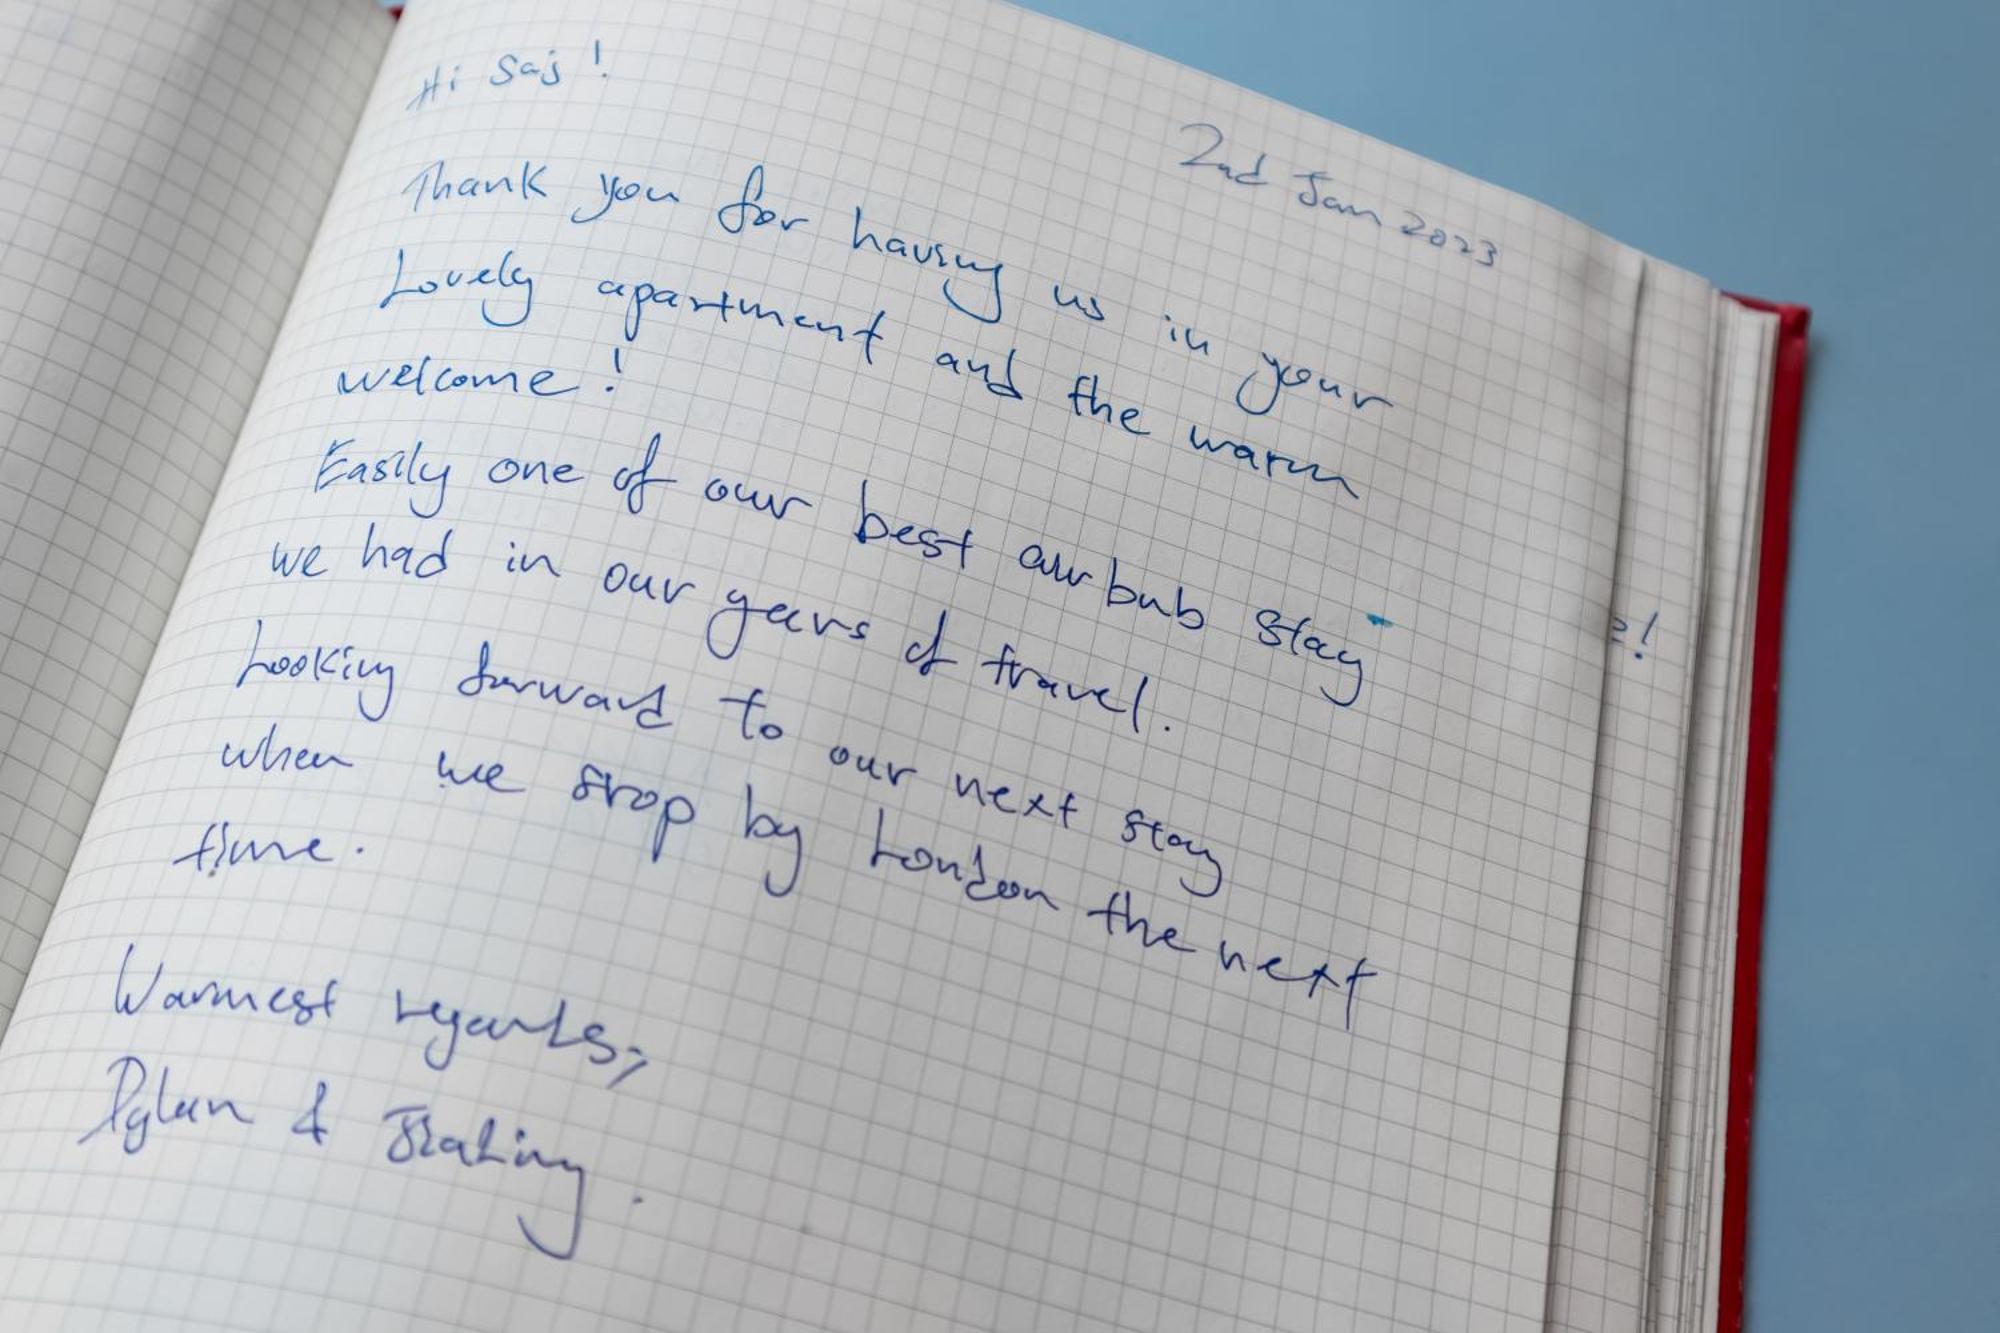 Hi Saj!
2nd Jan 2023
Thank you for having us in your
Lovely apartment and the warm
welcome!
Easily one of our best airbnb stay
we had in our years of travel.
Looking forward to our next stay
when we stop by London the next
time.
Warmest regards,
Dylan &